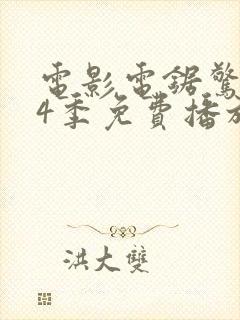 電影電鋸驚
4季免費播放
洪大雙